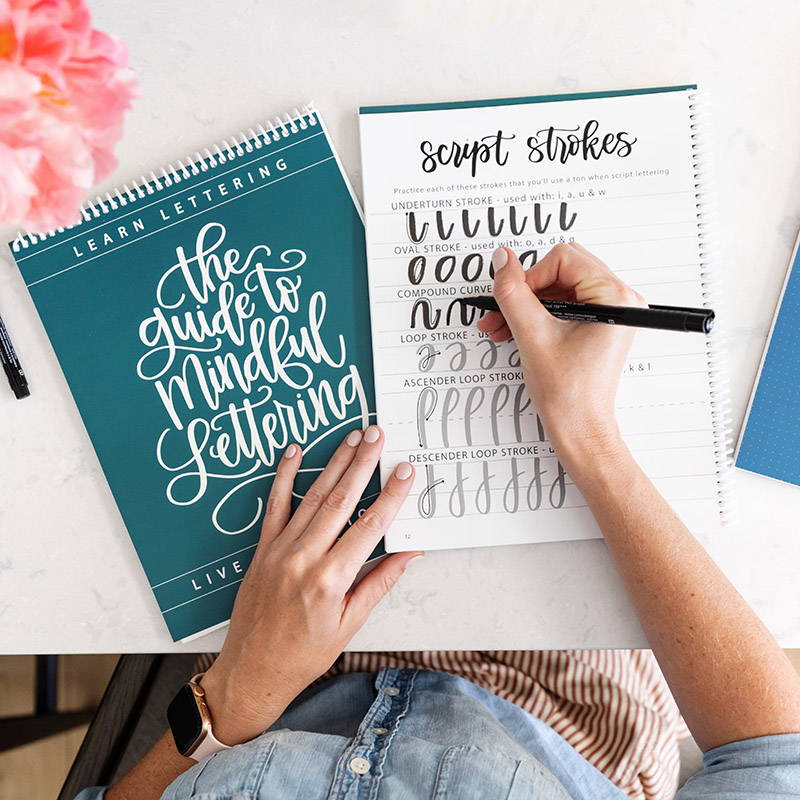 LEARN LETTERING
the
guide to
Mindful
Lettering
LIVE
script strokes
Practice each of these strokes that you'll use a ton when script lettering
UNDERTURN STROKE - used with: i, a, u & w
OVAL STROKE - used with: o, a, d & g
COMPOUND CURVE
LOOP STROKE -
ASCENDER LOOP STROKE
k & l
DESCENDER LOOP STROKE -
12